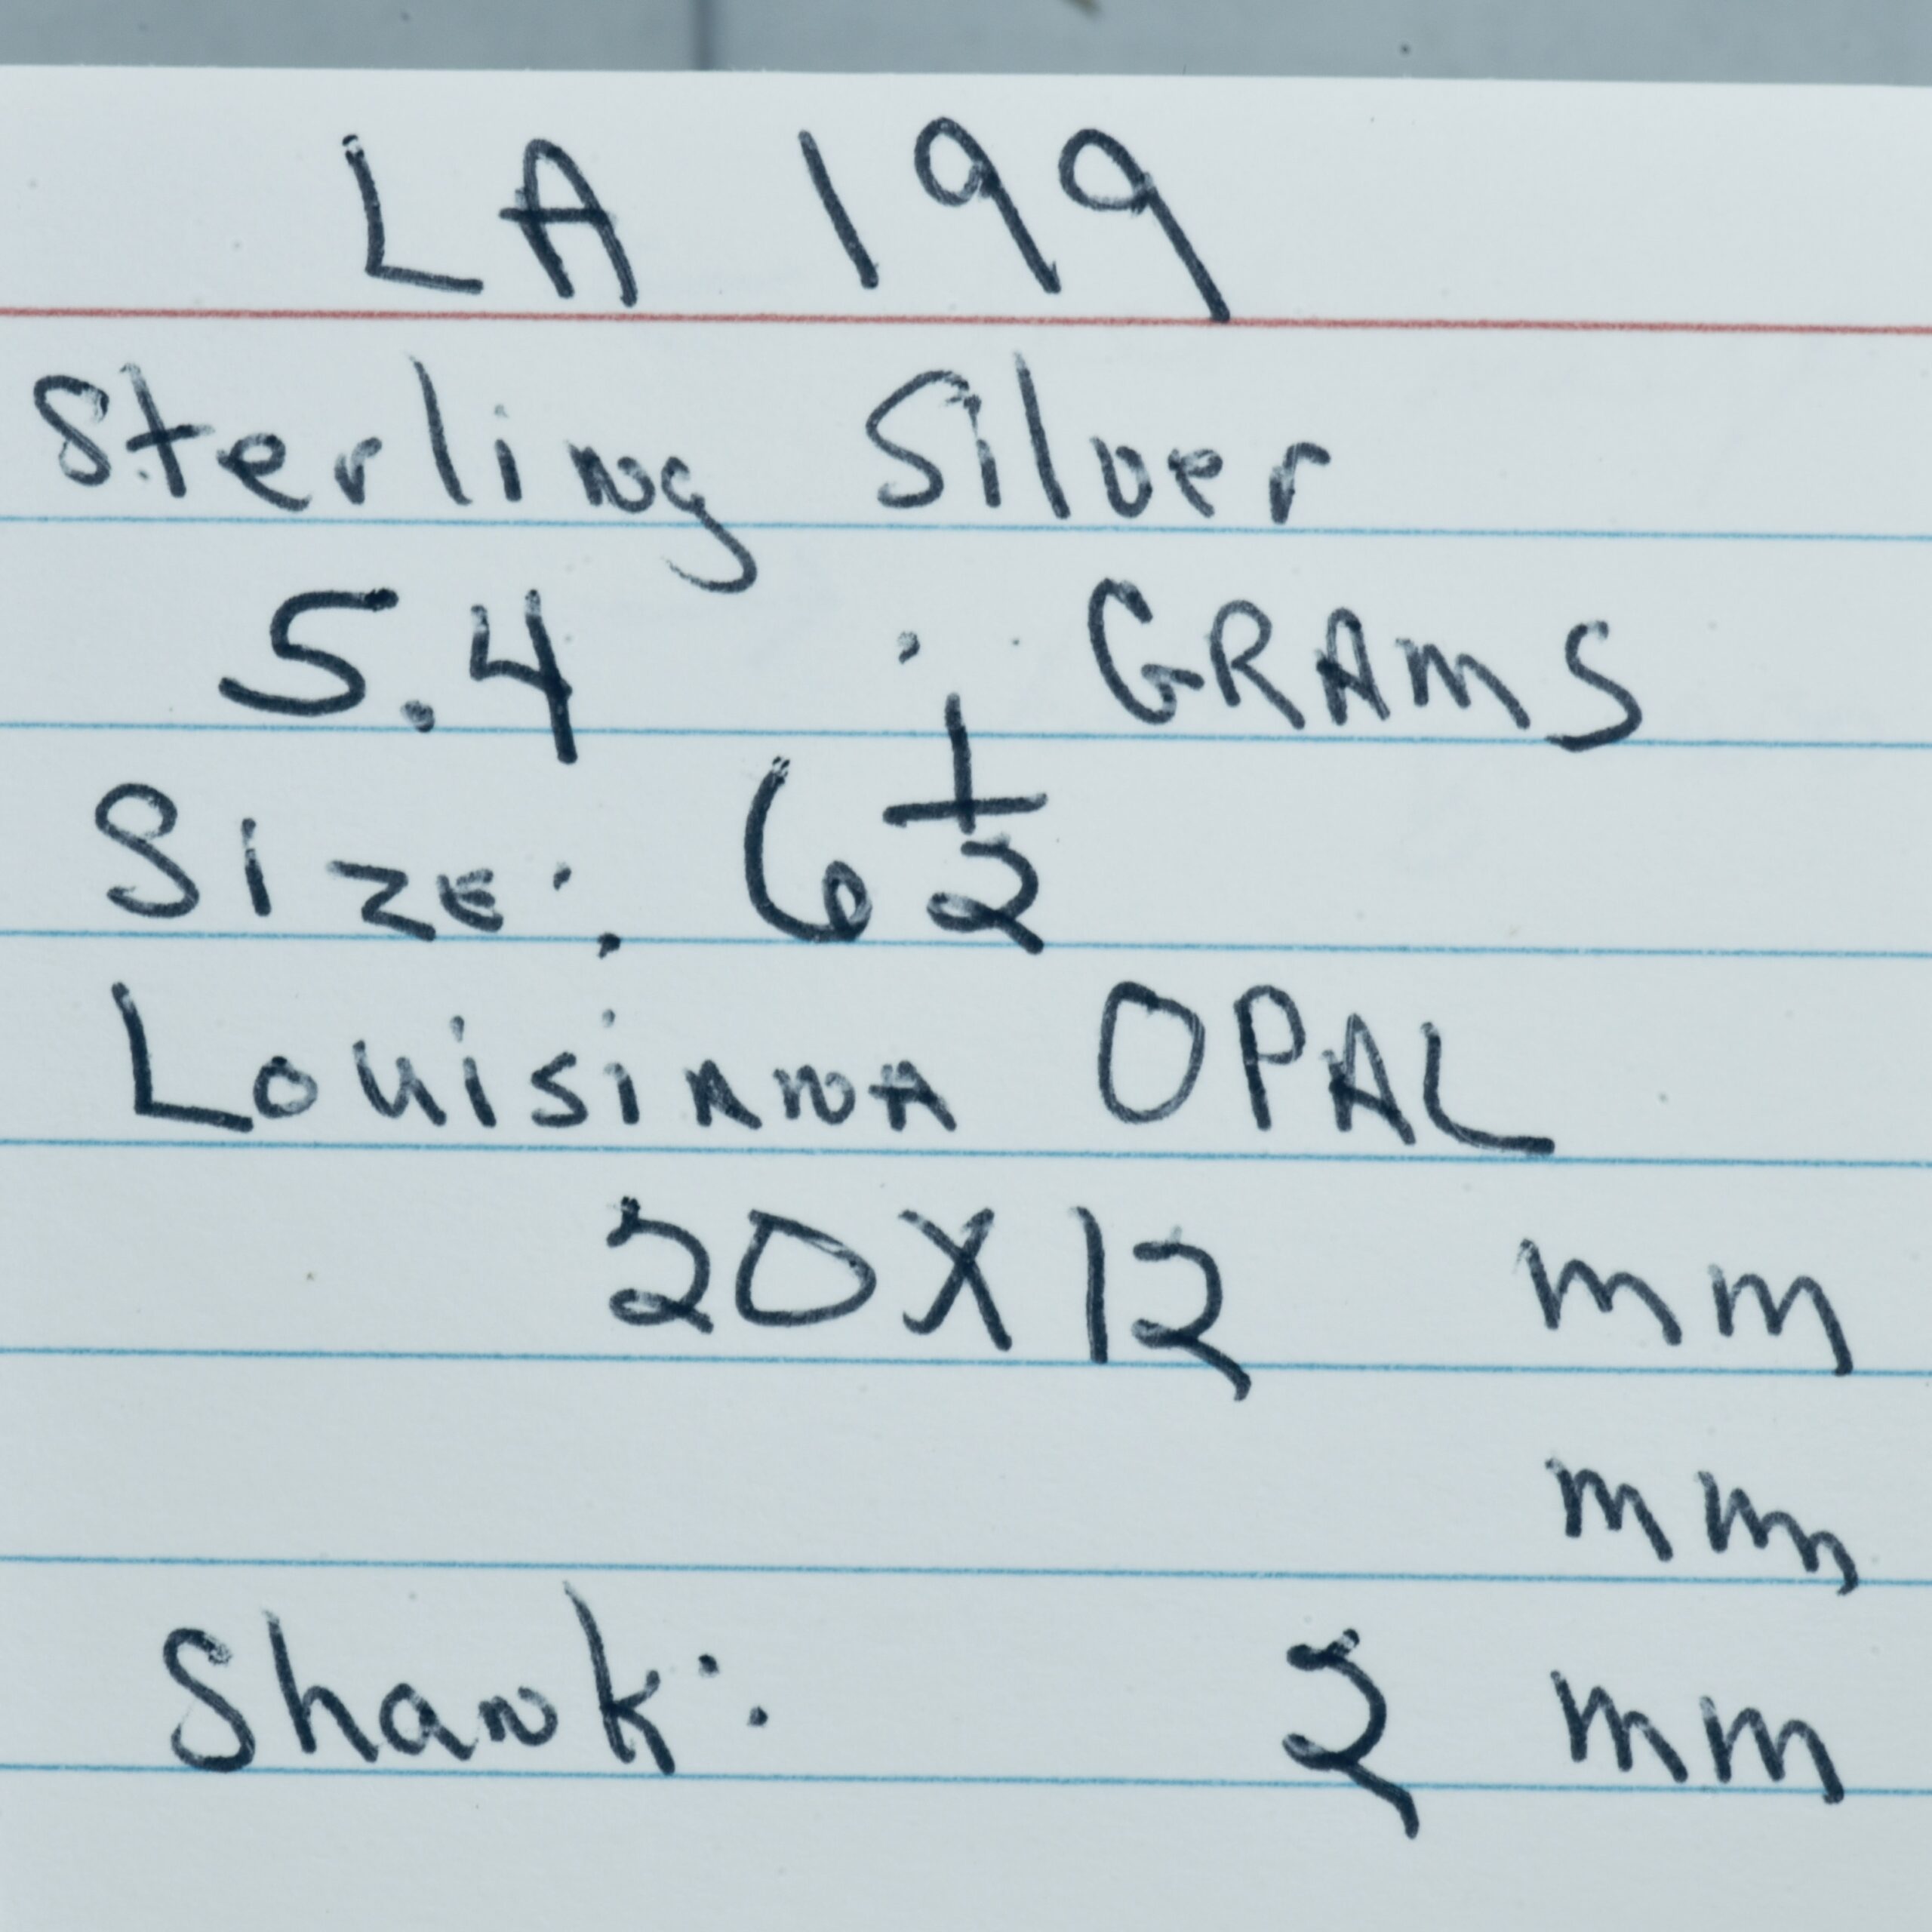 LA 199
Sterling Silver
5.4 GRAMS
Size: 6 1/2
Louisiana OPAL
20X12 mm
mm
Shank: 2 mm